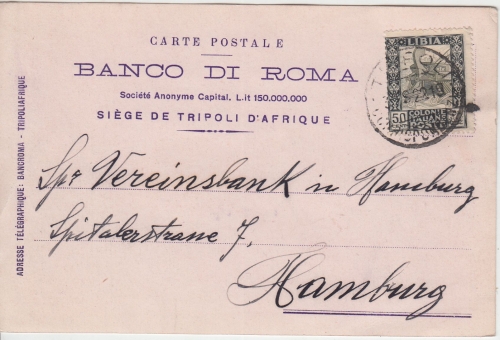 CARTE POSTALE
BANCO DI ROMA
Société Anonyme Capital. L.it 150.000.000
SIÈGE DE TRIPOLI D'AFRIQUE
ADRESSE TÉLÉGRAPHIQUE: BANCROMA - TRIPOLIAFRIQUE
LIBIA
50
POSTE
Spr Vereinsbank in Hamburg
Spitalerstrane 7,
Hamburg